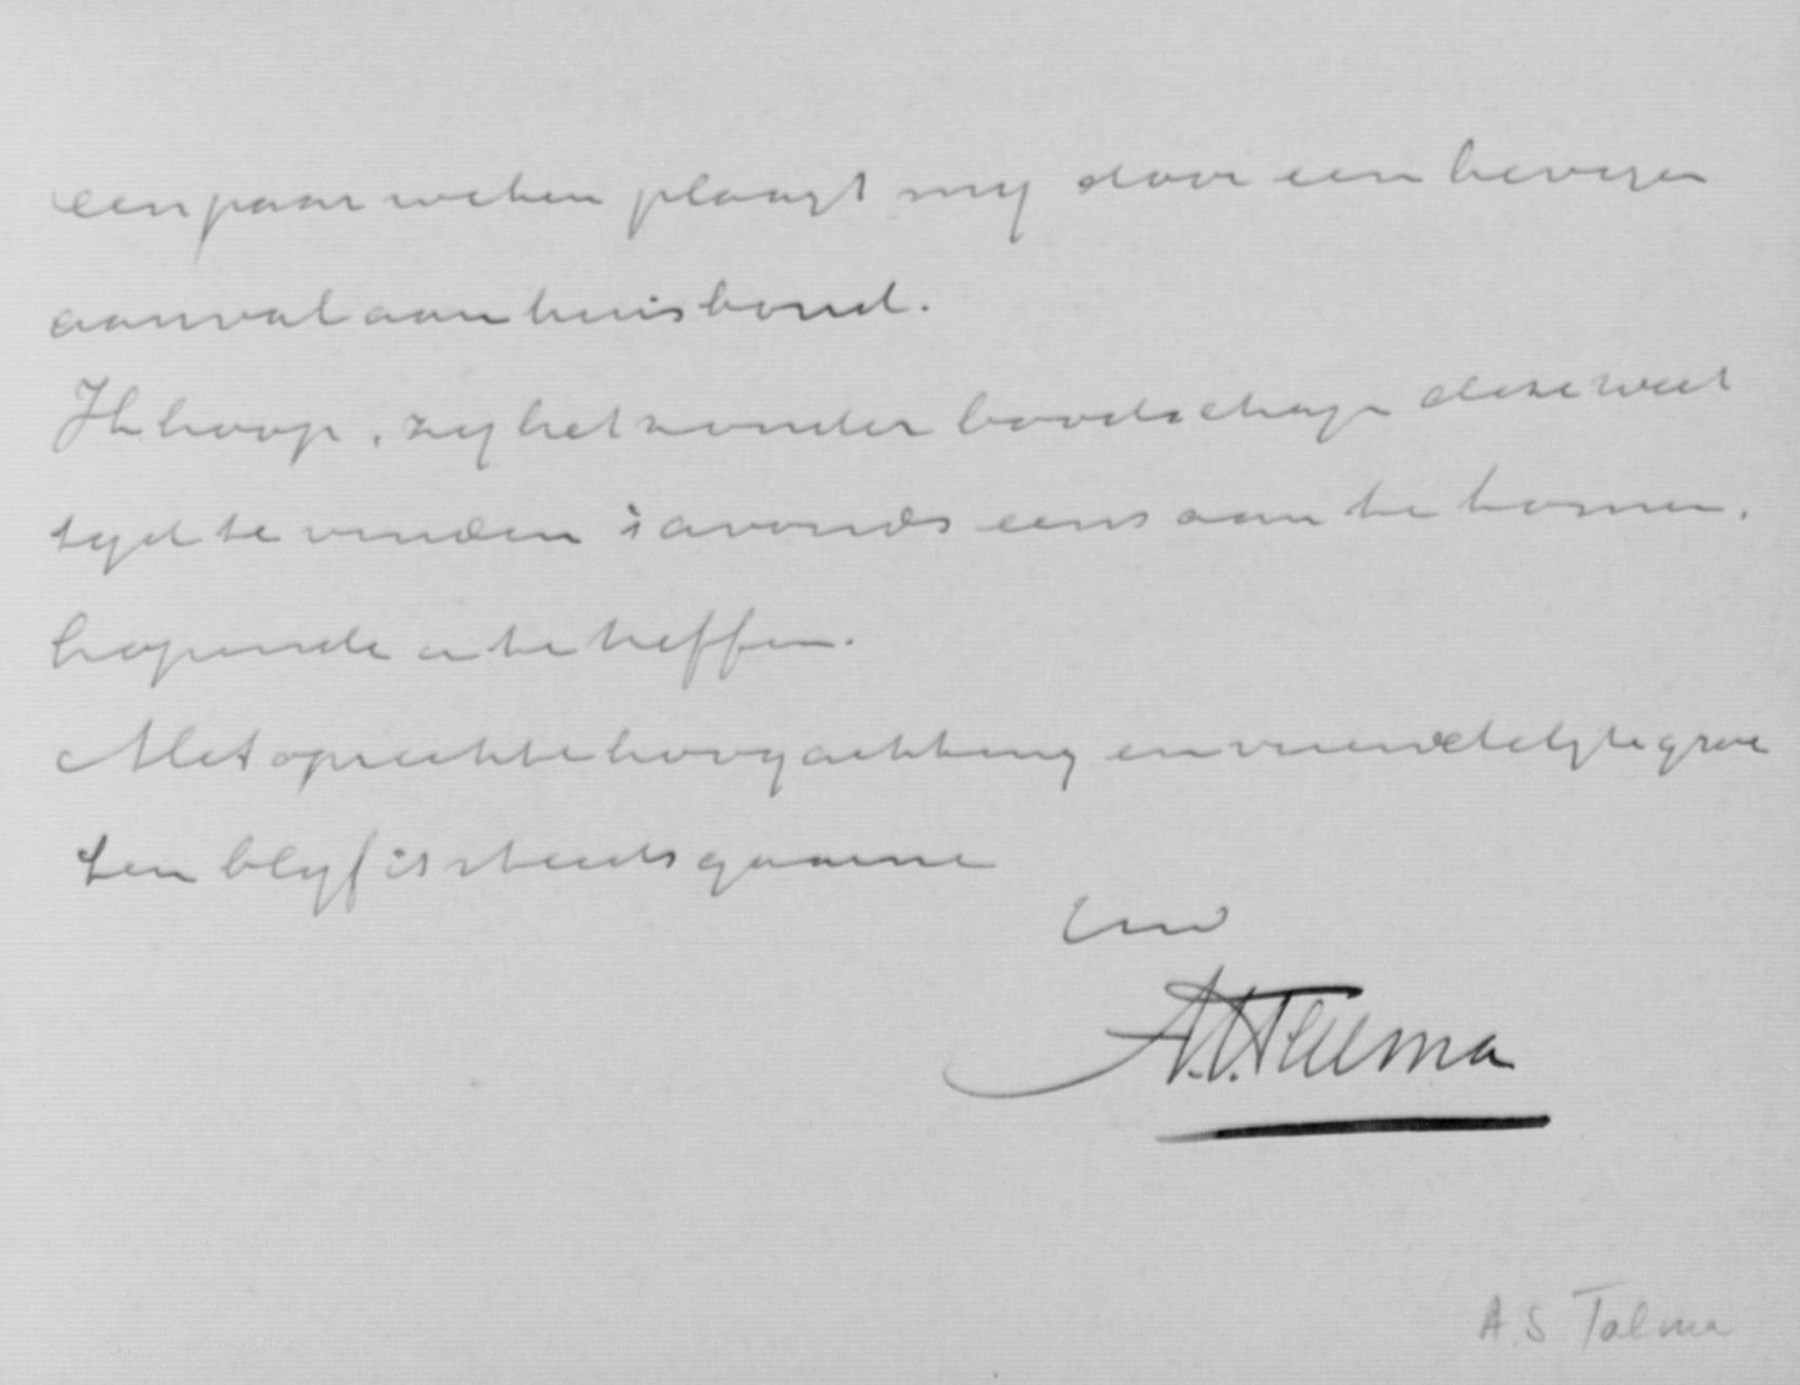 een paar weken plaagt my door een hevigen
aanval aan huis bond.
Ik hoop, zy het zonder boodschap deze week
tyd te vinden 's avonds eens aan te komen,
hopende u te treffen.
Met oprechte hoogachting en vriendelyke groe
ten blyf ik steeds gaarne
Uw
A.S. Talma
A.S Talma